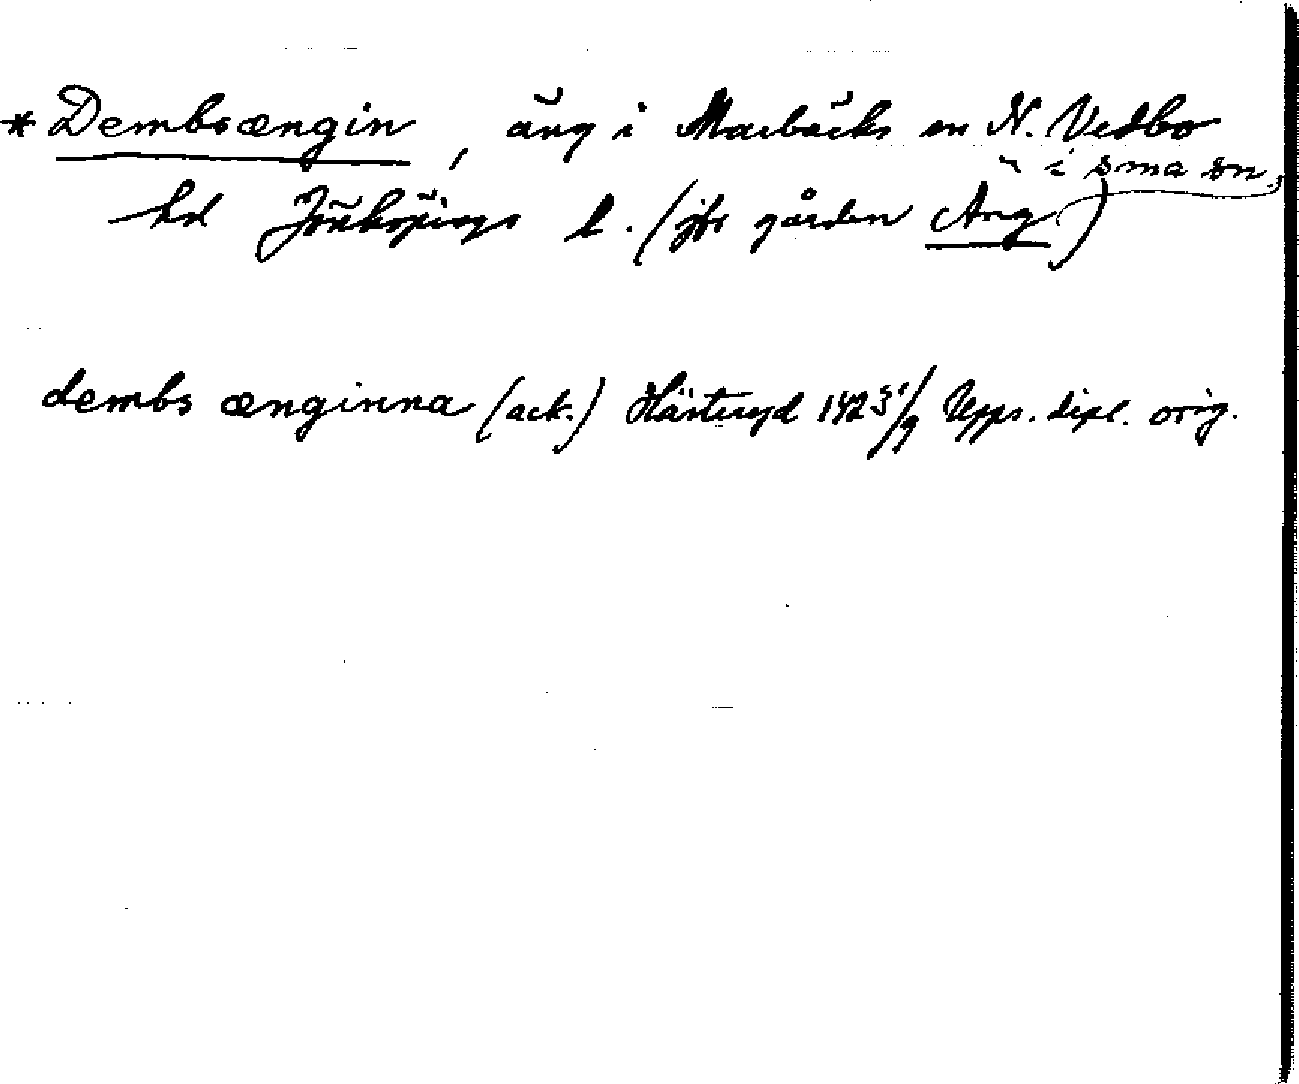 * Dembsængin, äng i Marbäcks sn N. Vedbo
hd Jönköpings l. (jfr gården Äng i sma sn,)
dembs ænginna (ack.) Hästeryd 1423 1/9 Upps. dipl. orig.